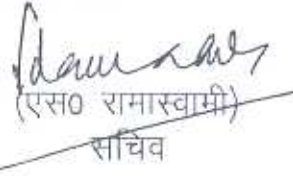 (एस0 रामास्वामी)
सचिव